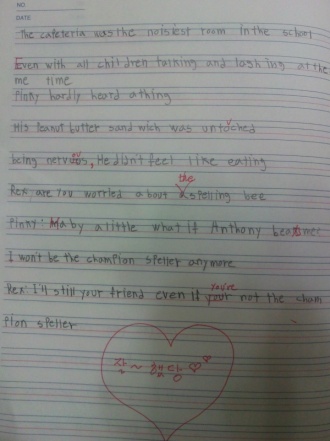 NO.
DATE
The cafeteria was the noisiest room in the school
Even with all children talking and lashing at the
me time
Pinky hardly heard a thing
His peanut butter sand wich was untouched
being nervous, He didn't feel like eating
the
Rex are you worried a bout a spelling bee
Pinky: Maby a little what if Anthony beats me
I won't be the champion speller anymore
you're
Rex I'll still your friend even if your not the cham
pion speller
참~ 잘했당